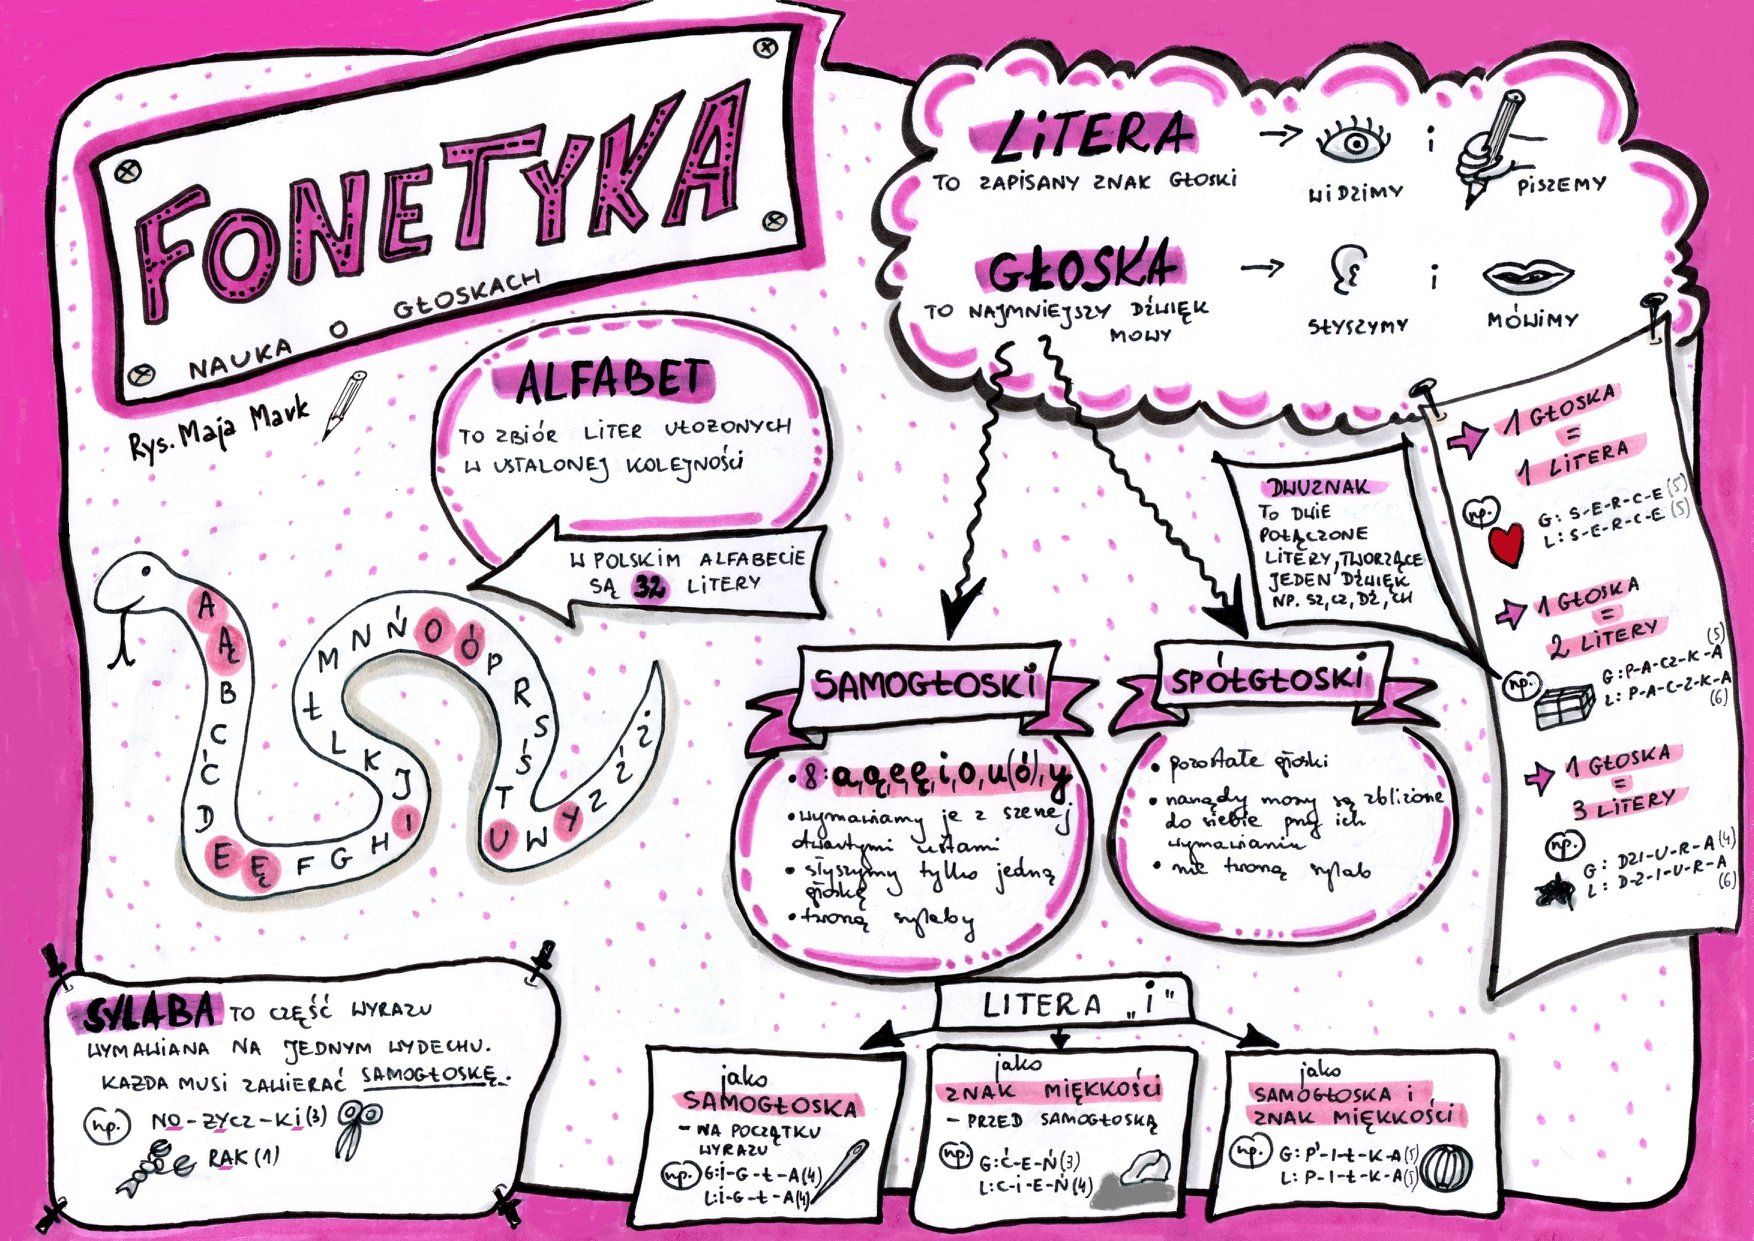 FONETYKA
NAUKA O GŁOSKACH
Rys. Maja Mark
LITERA
TO ZAPISANY ZNAK GŁOSKI
WIDZIMY
i
PISZEMY
GŁOSKA
TO NAJMNIEJSZY DŹWIĘK
MOWY
SŁYSZYMY
i
MÓWIMY
ALFABET
TO ZBIÓR LITER UŁOŻONYCH
W USTALONEJ KOLEJNOŚCI
W POLSKIM ALFABECIE
SĄ 32 LITERY
A Ą B C Ć D E Ę F G H I J K L Ł M N Ń O Ó P R S Ś T U W Y Z Ź Ż
DWUZNAK
TO DWIE
POŁĄCZONE
LITERY, TWORZĄCE
JEDEN DŹWIĘK
NP. SZ, CZ, DŹ, CH
1 GŁOSKA
=
1 LITERA
np.
G: S-E-R-C-E (5)
L: S-E-R-C-E (5)
1 GŁOSKA
=
2 LITERY
np.
G: P-A-CZ-K-A (5)
L: P-A-C-Z-K-A (6)
1 GŁOSKA
=
3 LITERY
np.
G: DZI-U-R-A (4)
L: D-Z-I-U-R-A (6)
SAMOGŁOSKI
• 8: a, ą, e, ę, i, o, u(ó), y
• wymawiamy je z szerzej
otwartymi ustami
• słyszymy tylko jedną
głoskę
• tworzą sylaby
SPÓŁGŁOSKI
• pozostałe głoski
• narządy mowy są zbliżone
do siebie przy ich
wymawianiu
• nie tworzą sylab
SYLABA TO CZĘŚĆ WYRAZU
WYMAWIANA NA JEDNYM WYDECHU.
KAŻDA MUSI ZAWIERAĆ SAMOGŁOSKĘ.
np. NO-ŻYCZ-KI (3)
RAK (1)
LITERA „i"
jako
SAMOGŁOSKA
- NA POCZĄTKU
WYRAZU
np. G: I-G-Ł-A (4)
L: I-G-Ł-A (4)
jako
ZNAK MIĘKKOŚCI
- PRZED SAMOGŁOSKĄ
np. G: Ć-E-Ń (3)
L: C-i-E-Ń (4)
jako
SAMOGŁOSKA I
ZNAK MIĘKKOŚCI
np. G: P'-I-Ł-K-A (5)
L: P-I-Ł-K-A (5)